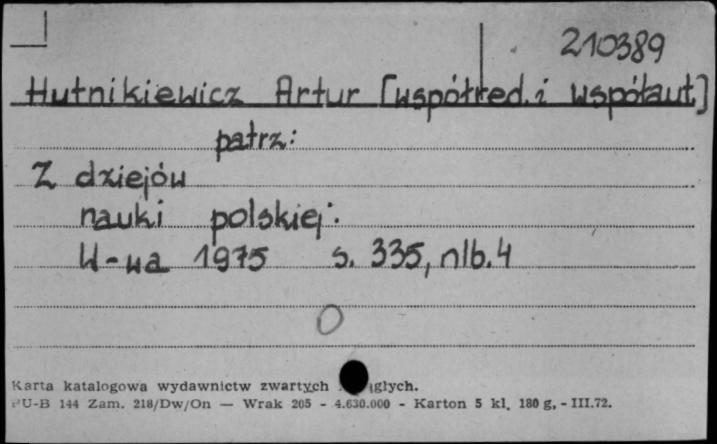 210389
Hutnikiewicz Artur [współred. i współaut.]
patrz:
Z dziejów
nauki polskiej.
W-wa 1975 s. 335, nlb. 4
Karta katalogowa wydawnictw zwartych
PU-B 144 Zam. 218/Dw/On — Wrak 205 - 4.630.000 - Karton 5 kl. 180 g, - III.72.